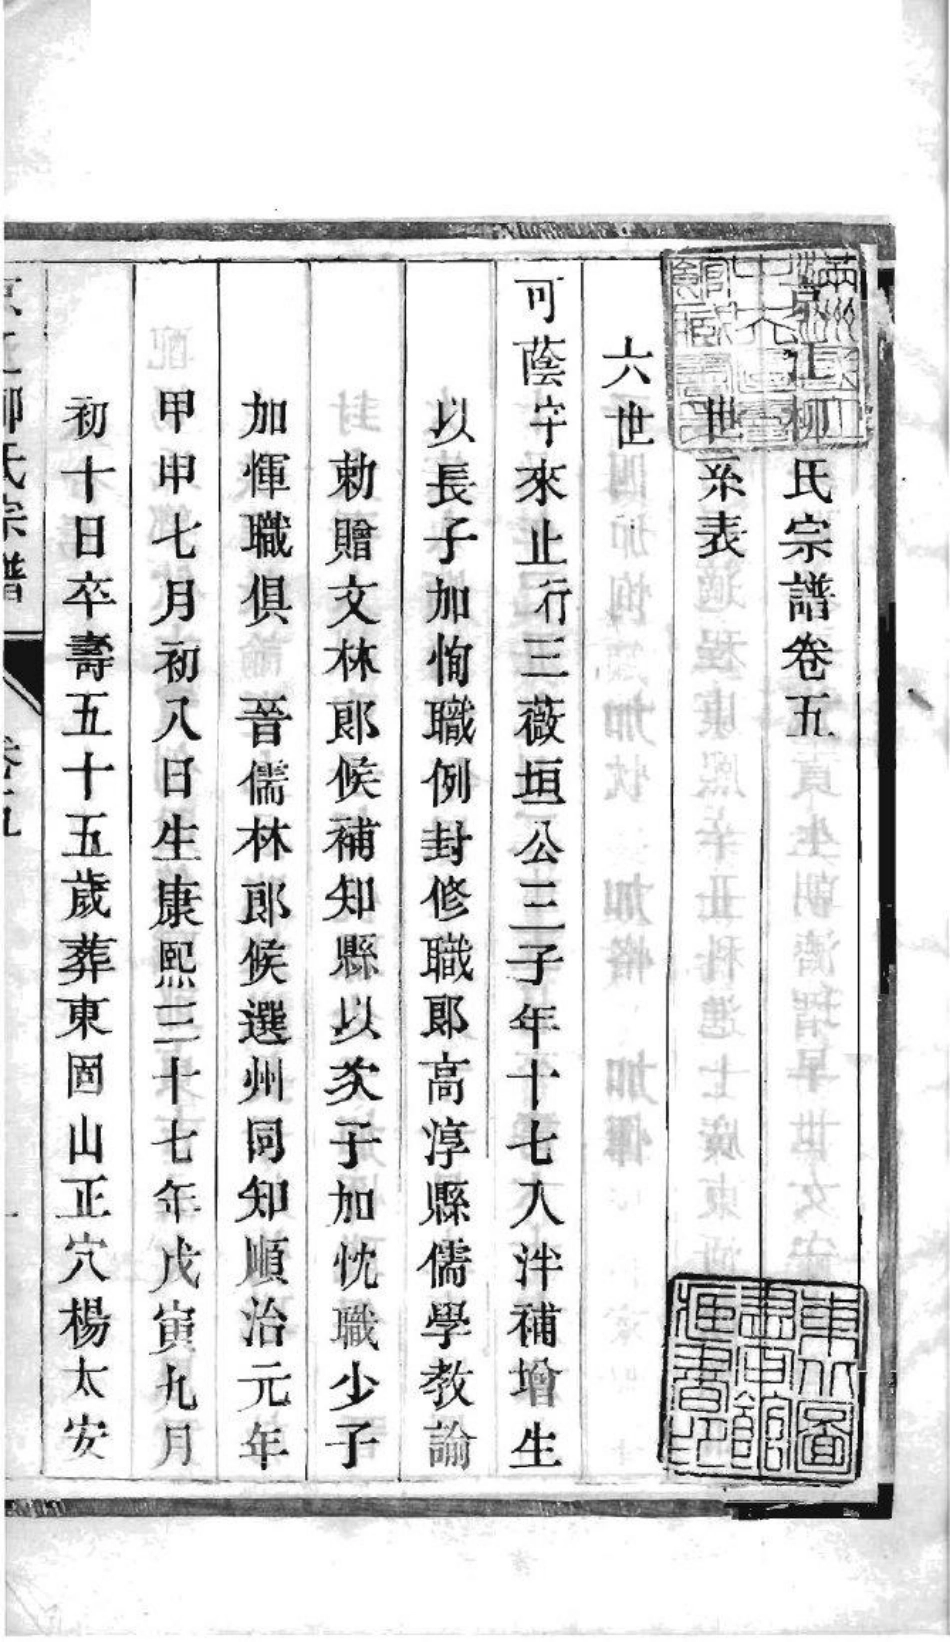 京江柳氏宗譜卷五
世系表
六世
可蔭字來止行三薇垣公三子年十七入泮補增生
以長子加恂職例封修職郎高淳縣儒學教諭
勅贈文林郎候補知縣以次子加忱職少子
加惲職俱 晉儒林郎候選州同知順治元年
甲申七月初八日生康熙三十七年戊寅九月
初十日卒壽五十五歲葬東固山正穴楊太安
京江柳氏宗譜 卷五 一